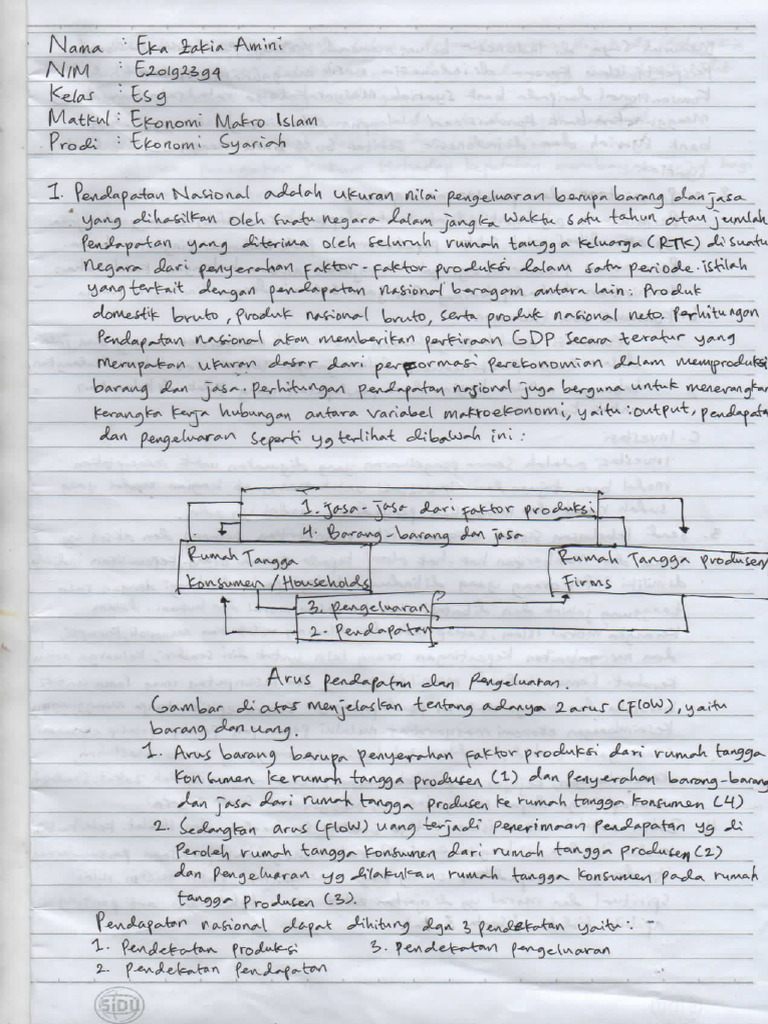 Nama : Eka Zakia Amini
NIM : E20192394
Kelas : ES9
Matkul : Ekonomi Makro Islam
Prodi : Ekonomi Syariah
1. Pendapatan Nasional adalah ukuran nilai pengeluaran berupa barang dan jasa
yang dihasilkan oleh suatu negara dalam jangka waktu satu tahun atau jumlah
Pendapatan yang diterima oleh seluruh rumah tangga keluarga (RTK) di suatu
negara dari penyerahan faktor-faktor produksi dalam satu periode. istilah
yang terkait dengan pendapatan nasional beragam antara lain : Produk
domestik bruto, Produk nasional bruto, serta produk nasional neto. Perhitungan
Pendapatan nasional akan memberikan perkiraan GDP secara teratur yang
merupakan ukuran dasar dari performasi perekonomian dalam memproduksi
barang dan jasa. Perhitungan pendapatan nasional juga berguna untuk menerangkan
kerangka kerja hubungan antara variabel makroekonomi, yaitu : output, pendapata
dan pengeluaran seperti yg terlihat dibawah ini :
1. Jasa-jasa dari faktor produksi
4. Barang-barang dan jasa
Rumah Tangga
Konsumen / Households
Rumah Tangga produsen/
Firms
3. pengeluaran
2. Pendapatan
Arus pendapatan dan Pengeluaran.
Gambar di atas menjelaskan tentang adanya 2 arus (Flow), yaitu
barang dan uang.
1. Arus barang berupa penyerahan faktor produksi dari rumah tangga
Konsumen ke rumah tangga produsen (1) dan penyerahan barang-barang
dan jasa dari rumah tangga produsen ke rumah tangga konsumen (4)
2. Sedangkan arus (flow) uang terjadi penerimaan Pendapatan yg di
Peroleh rumah tangga Konsumen dari rumah tangga produsen (2)
dan Pengeluaran yg dilakukan rumah tangga konsumen pada rumah
tangga Produsen (3).
Pendapatan nasional dapat dihitung dgn 3 pendekatan yaitu : -
1. Pendekatan produksi 3. Pendekatan pengeluaran
2. Pendekatan Pendapatan
SIDU